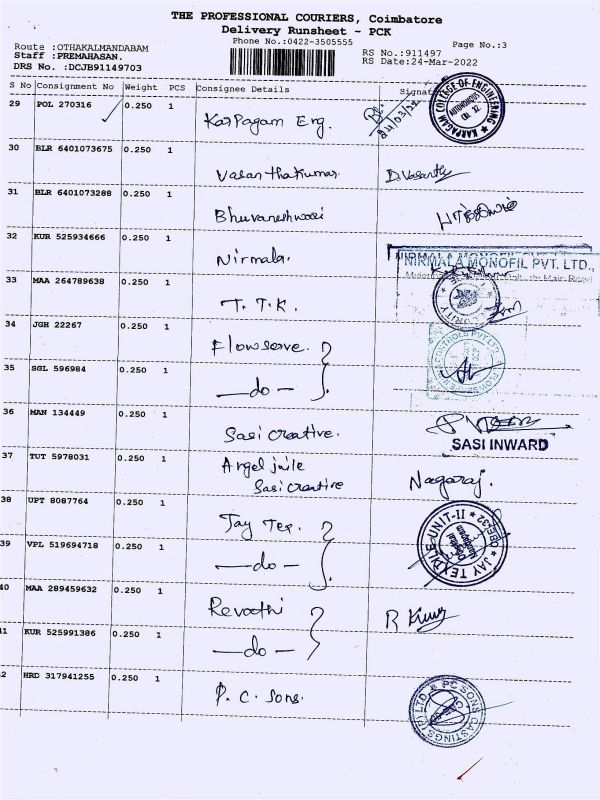 THE PROFESSIONAL COURIERS, Coimbatore
Delivery Runsheet - PCK
Phone No.:0422-3505555
Page No.:3
Route :OTHAKALMANDABAM
RS No.:911497
Staff :PREMAHASAN.
RS Date:24-Mar-2022
DRS No.:DCJB91149703
S No Consignment No Weight PCS Consignee Details Signat
29 POL 270316 0.250 1 Karpagam Eng.
24/03/22
KARPAGAM COLLEGE OF ENGINEERING
AUTONOMOUS
CBE. 32.
30 BLR 6401073675 0.250 1 Vasanthakumar D.Vasanth
31 BLR 6401073288 0.250 1 Bhuvaneshwari
32 KUR 525934666 0.250 1 Nirmala.
NIRMALA MONOFIL PVT. LTD.,
Main Road
33 MAA 264789638 0.250 1 T. T. K.
SECURITY
34 JGH 22267 0.250 1 Flowserve.
CONTROLS PVT LTD
35 SGL 596984 0.250 1 —do—
36 MAN 134449 0.250 1 Sasi Creative.
SASI INWARD
37 TUT 5978031 0.250 1 Angel jule
Sasi Creative Nagaraj.
38 UPT 8087764 0.250 1 Jay Tex.
JAY TEXTILE UNIT-II
39 VPL 519694718 0.250 1 —do—
40 MAA 289459632 0.250 1 Revathi R Kumar
41 KUR 525991386 0.250 1 —do—
42 HRD 317941255 0.250 1 P. C. Sons.
PC SONS CASTINGS (P) LTD